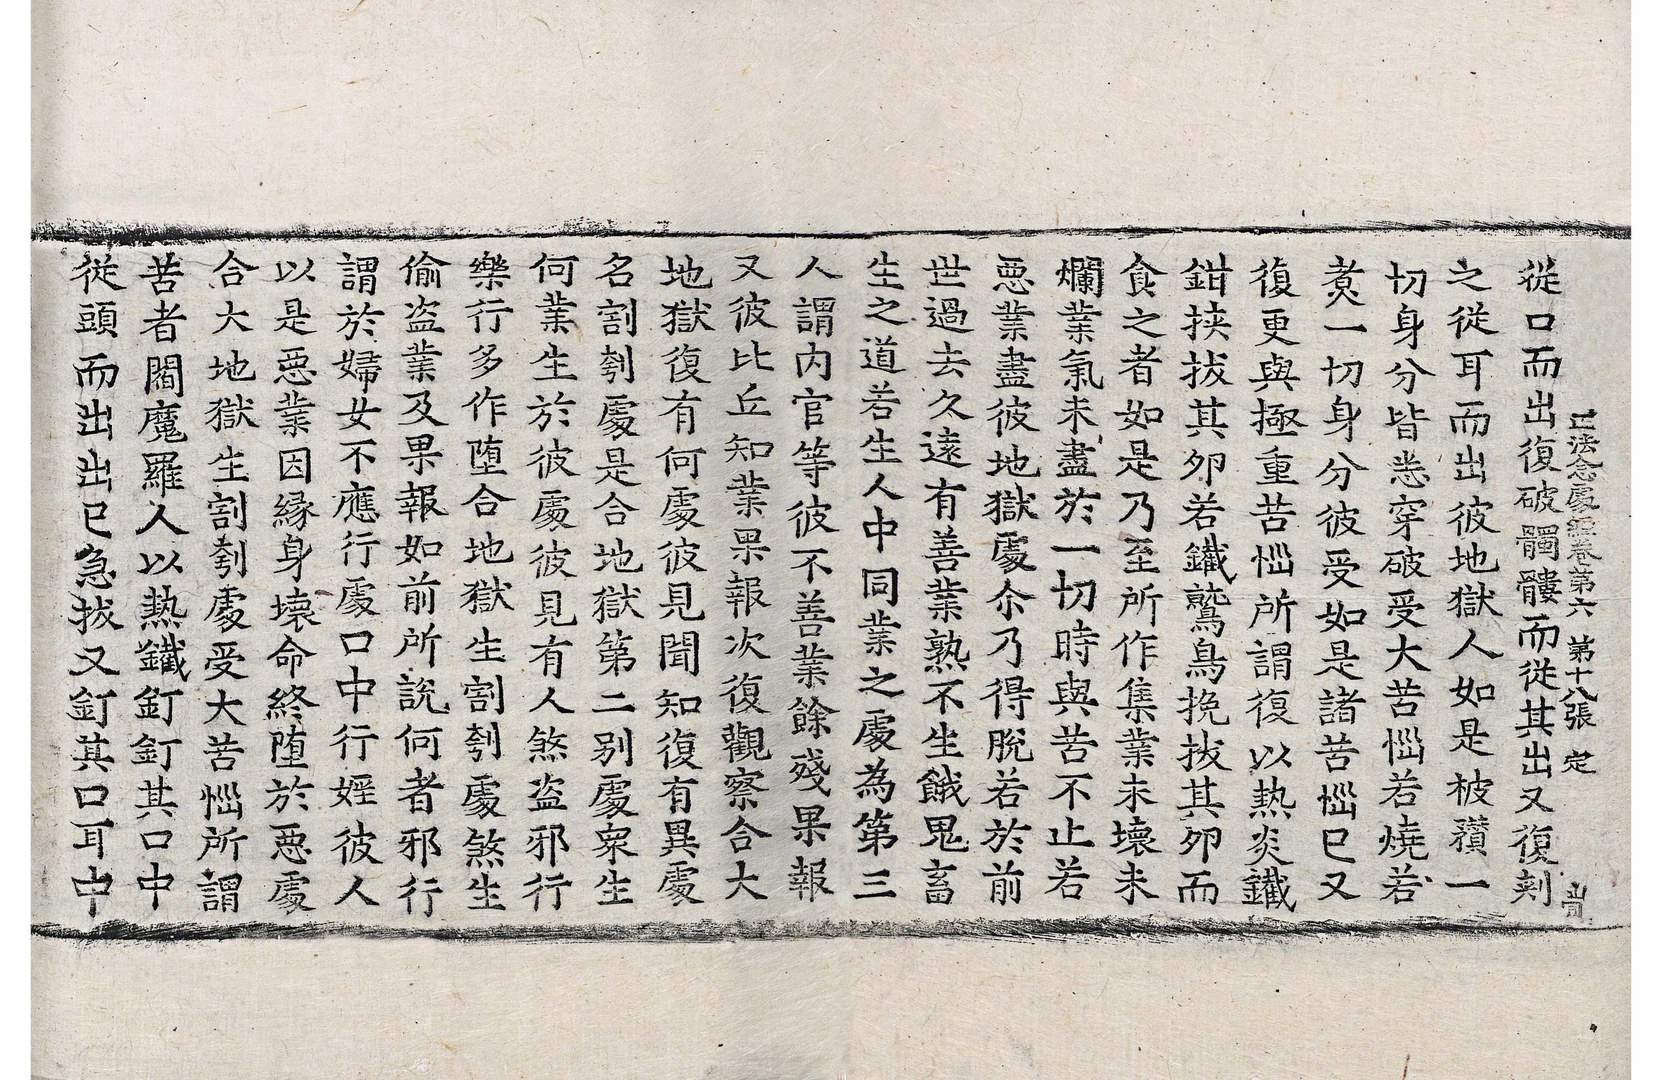 正法念處經卷第六 第十八張 定
從口而出復破髑髏而從其出又復剜
之從耳而出彼地獄人如是被㰈一
切身分皆悉穿破受大苦惱若燒若
煑一切身分彼受如是諸苦惱已又
復更與極重苦惱所謂復以熱炎鐵
鉗挟拔其夘若鐵鷲鳥挽拔其夘而
食之者如是乃至所作集業未壞未
爛業氣未盡於一切時與苦不止若
惡業盡彼地獄處尒乃得脫若於前
世過去久遠有善業熟不生餓鬼畜
生之道若生人中同業之處為第三
人謂內官等彼不善業餘殘果報
又彼比丘知業果報次復觀察合大
地獄復有何處彼見聞知復有異處
名割刳處是合地獄第二別處衆生
何業生於彼處彼見有人煞盜邪行
樂行多作堕合地獄生割刳處煞生
偷盜業及果報如前所說何者邪行
謂於婦女不應行處口中行婬彼人
以是惡業因緣身壞命終堕於惡處
合大地獄生割刳處受大苦惱所謂
苦者閻魔羅人以熱鐵釘釘其口中
從頭而出出已急拔又釘其口耳中